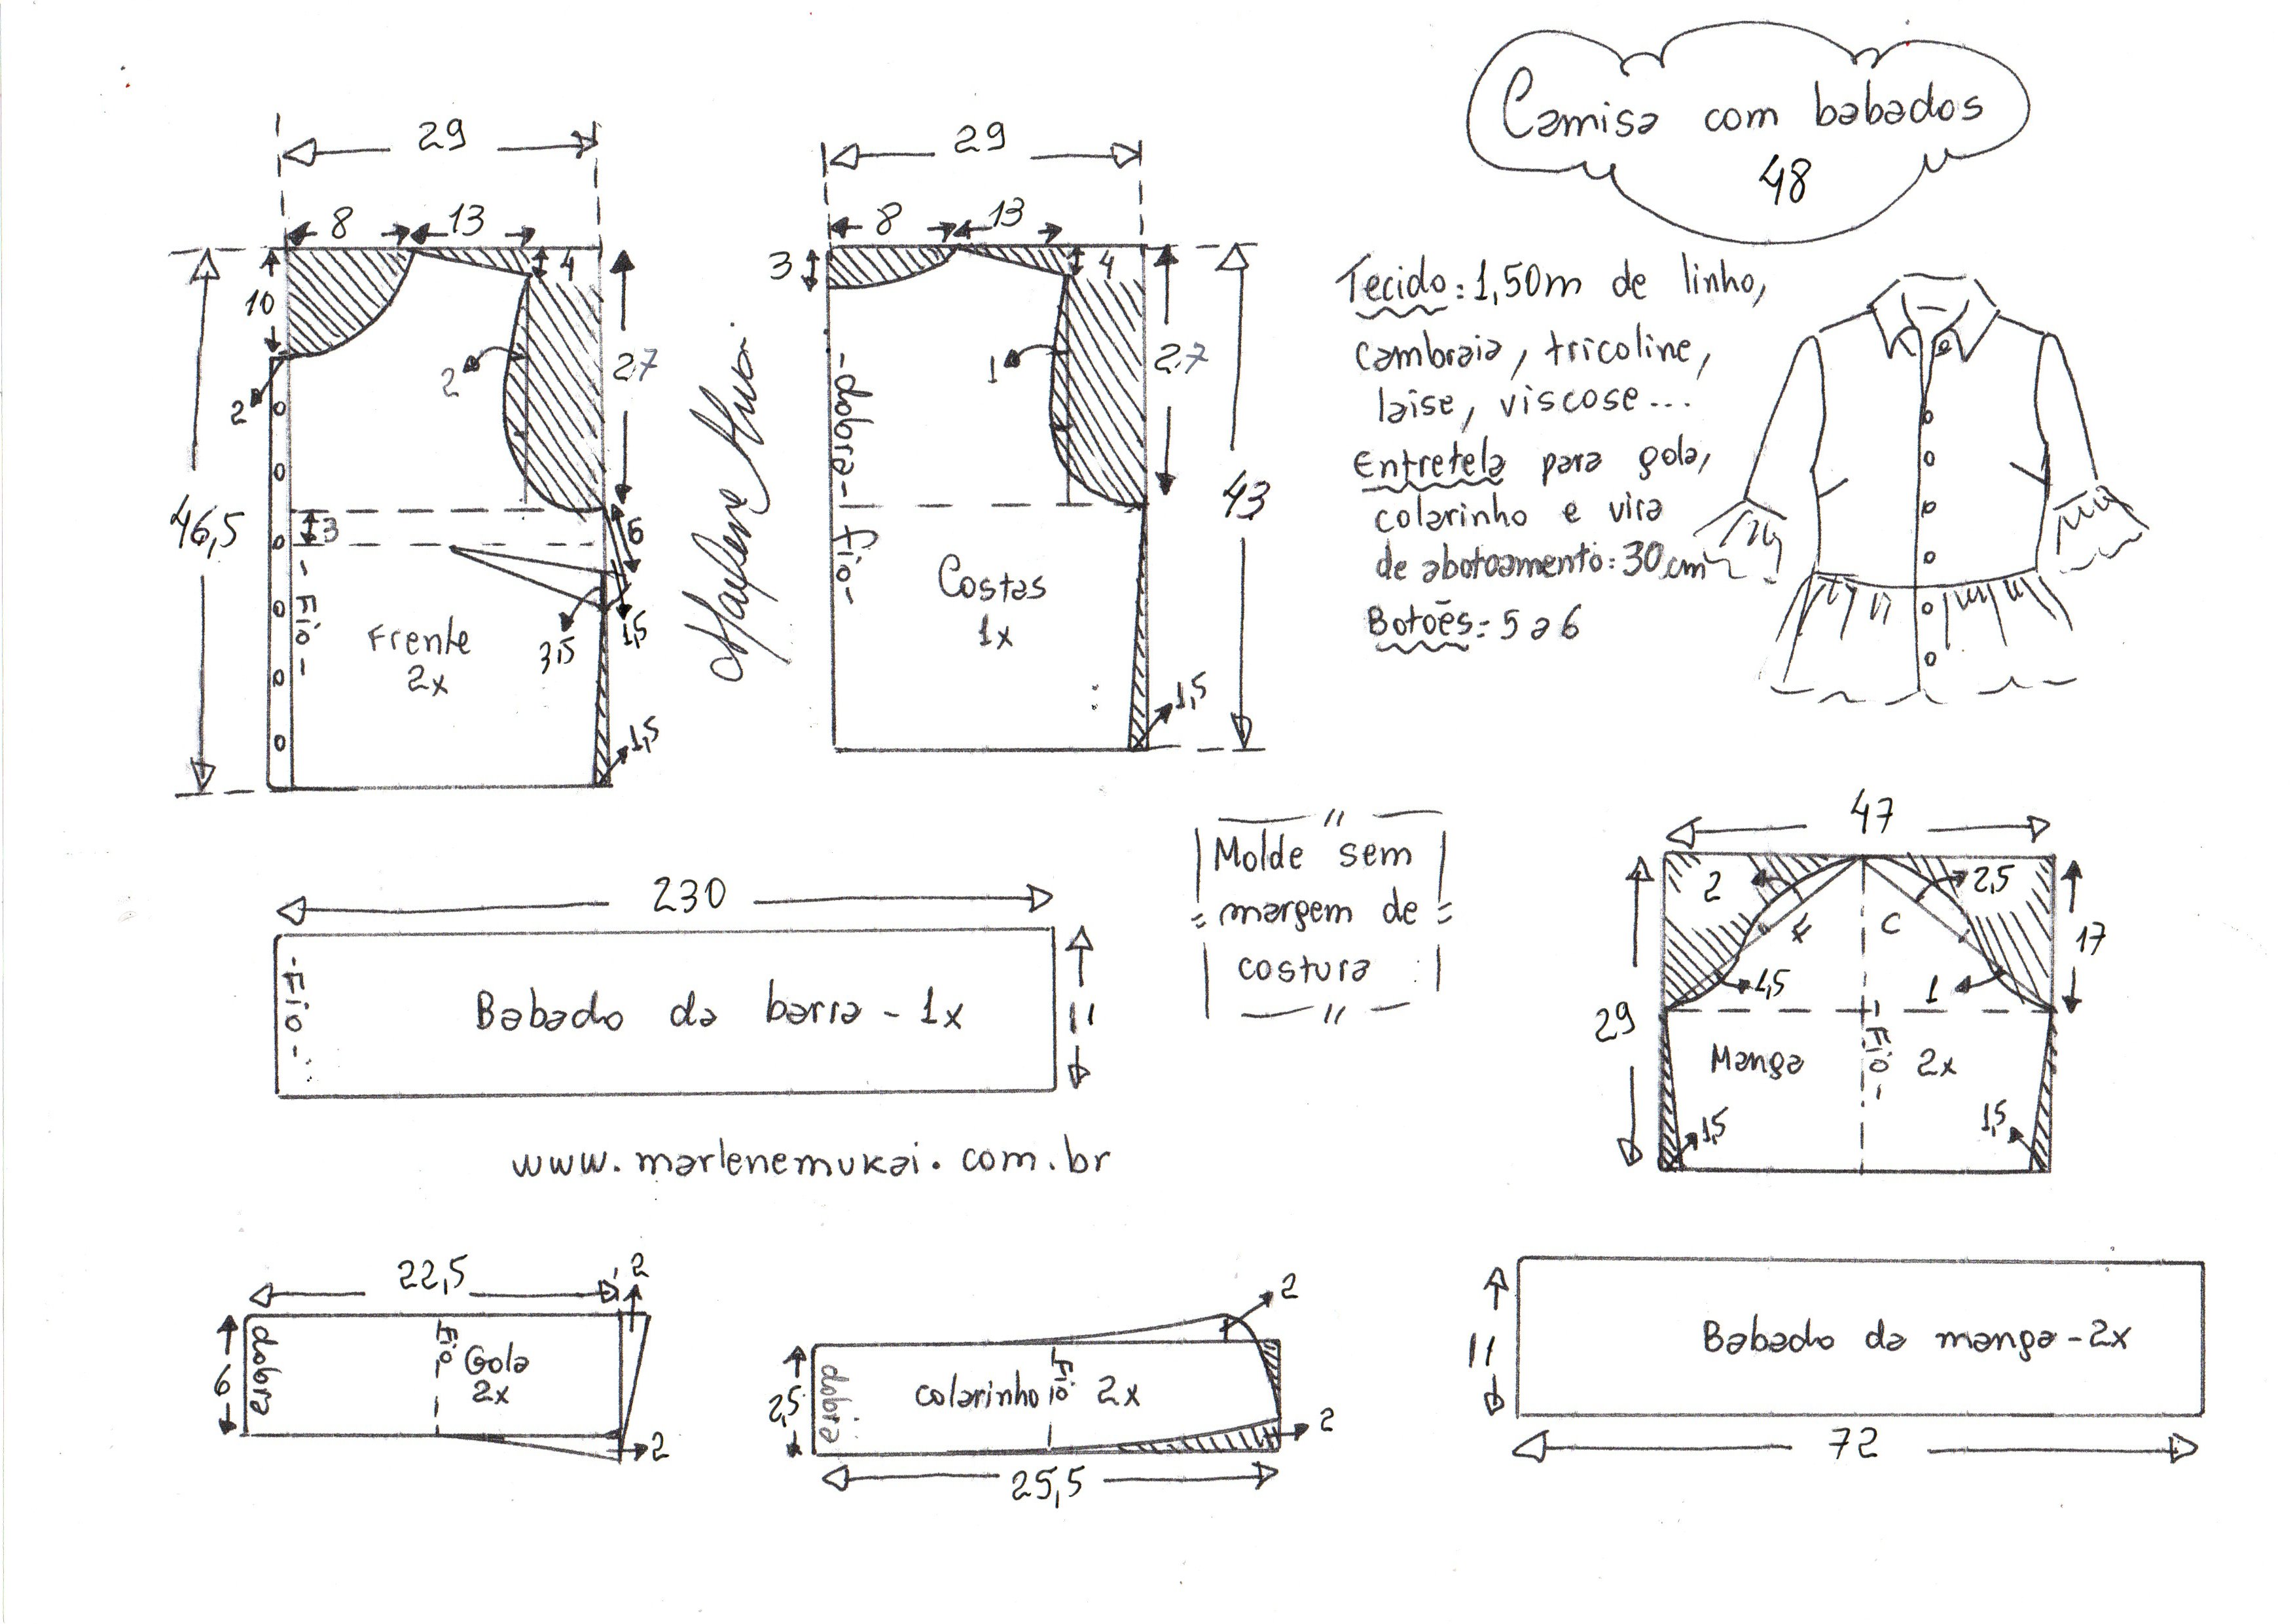 Camisa com babados
48
Tecido: 1,50m de linho,
cambraia, tricoline,
laise, viscose...
Entretela para gola,
colarinho e vira
de abotoamento: 30cm
Botões: 5 a 6
29
8 13
4
10
2
2
27
46,5
3
6
3,5
1,5
1,5
- Fio -
Frente
2x
Marlene Mukai
29
8 13
3
4
1
27
43
- dobra - fio -
Costas
1x
1,5
230
- Fio -
Babado da barra - 1x
11
Molde sem
margem de
costura
47
2
2,5
F
C
17
1,5
1
29
Manga
- Fio -
2x
1,5
1,5
www.marlenemukai.com.br
22,5
2
6
dobra
Fio
Gola
2x
2
2
2,5
dobra
colarinho
Fio
2x
2
25,5
11
Babado da manga - 2x
72